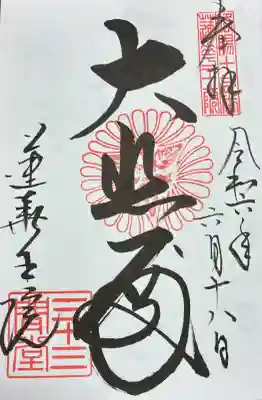 奉拝
令和六年
六月十八日
大悲殿
蓮華王院
三十三
間堂